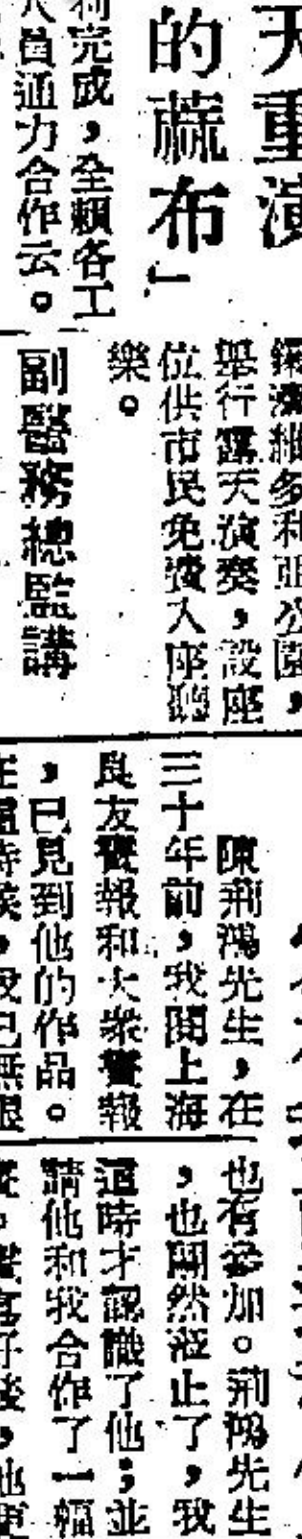 天重演
的疏布」
利完成，全賴各工
人員通力合作云。
銅鑼灣維多利亞公園，
舉行露天演奏，設座
位供市民免費入座聽
樂。
副醫務總監講
陳荊鴻先生，在
三十年前，我閱上海
良友畫報和大衆畫報
，已見到他的作品。
也有參加。荊鴻先生
，也闌然涖止了，我
這時才認識了他；並
請他和我合作了一幅